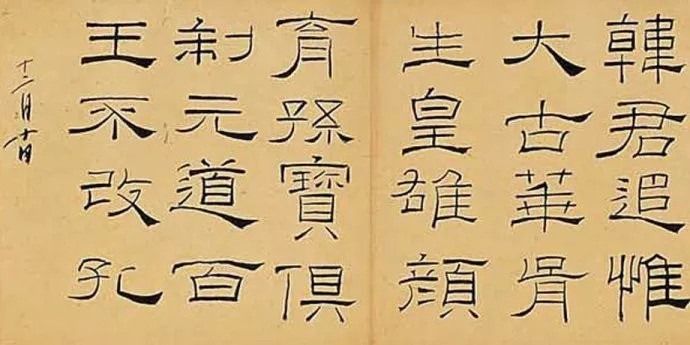 韓君追惟
大古華胥
生皇雄顏
育孫寶俱
制元道百
王不改孔
十二月